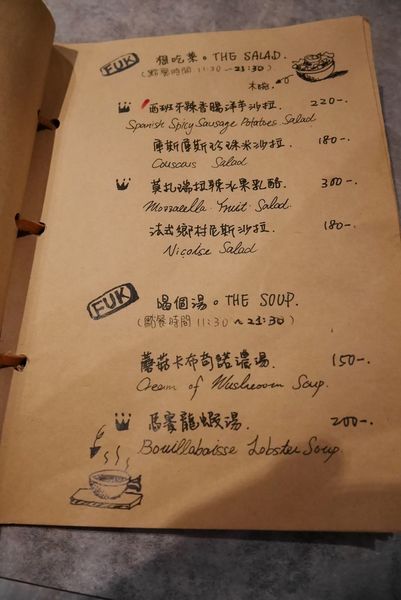 FUK 想吃菜。THE SALAD.
(點餐時間 11:30 ~ 21:30)
木碗.
西班牙辣香腸洋芋沙拉. 220-.
Spanish Spicy Sausage Potatoes Salad
摩斯摩斯珍珠米沙拉 180-.
Couscous Salad
莫扎瑞拉辣水果乳酪. 300-.
Mozzarella Fruit Salad.
法式鄉村尼斯沙拉. 180-.
Niçoise Salad
FUK 喝個湯。THE SOUP.
(點餐時間 11:30 ~ 21:30)
蘑菇卡布奇諾濃湯. 150-.
Cream of Mushroom Soup.
馬賽龍蝦湯 200-.
Bouillabaisse Lobster Soup.